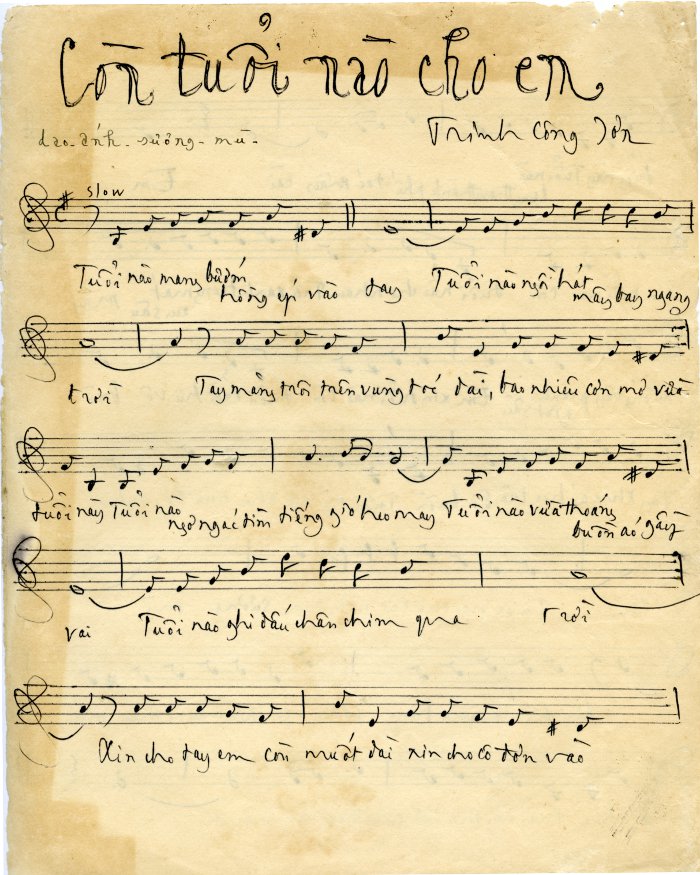 Còn tuổi nào cho em
dao-ánh-sương-mù-
Trịnh Công Sơn
slow
Tuổi nào mang bướm hồng ép vào tay Tuổi nào ngồi hát mây bay ngang
trời Tay măng trôi trên vùng tóc dài, bao nhiêu cơn mơ vừa
tuổi này Tuổi nào ngơ ngác tìm tiếng gió heo may Tuổi nào vừa thoáng buồn áo gầy
vai Tuổi nào ghi dấu chân chim qua trời
Xin cho tay em còn muốt dài xin cho cô đơn vào